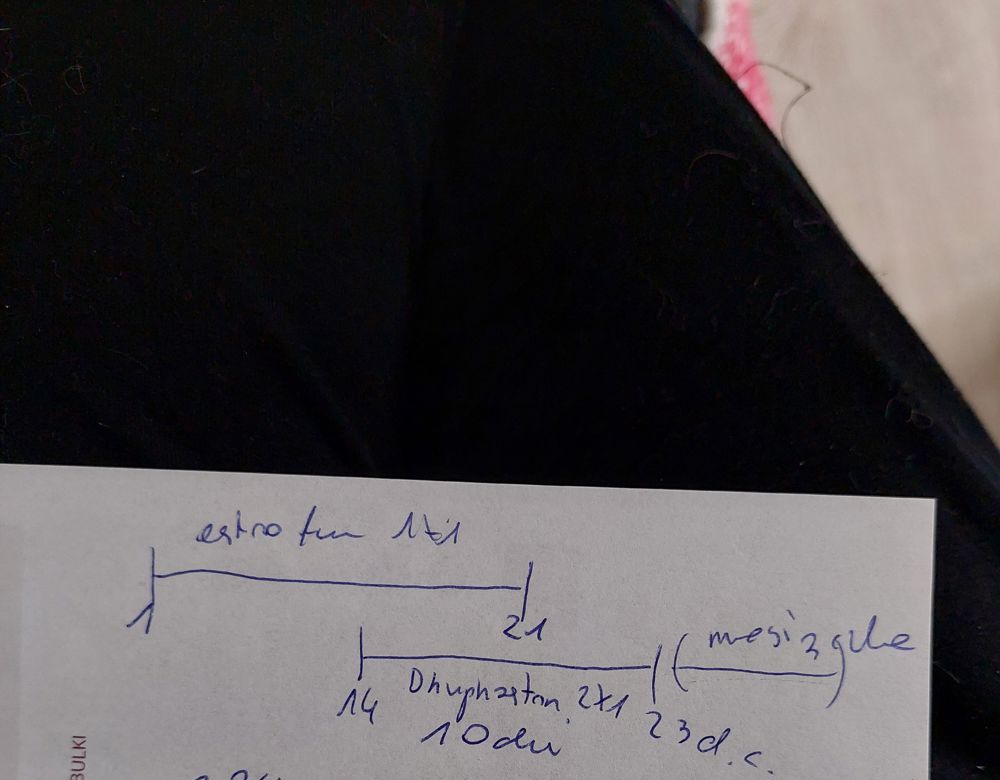 estrofem 1x1
1 21
miesiączka
14 Dhuphaston 2x1 23 d.c.
10 dni
BULKI